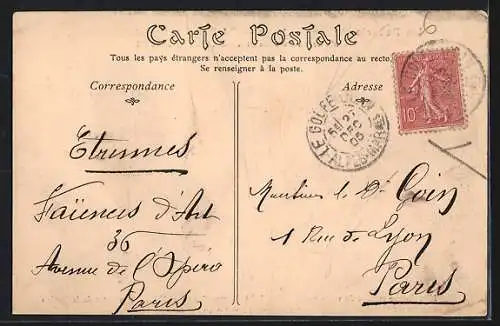 Carte Postale
Tous les pays étrangers n'acceptent pas la correspondance au recto.
Se renseigner à la poste.
Correspondance
Adresse
10c
LE GOLFE
Etrennes
Faïences d'Art
36
Avenue de l'Opéra
Paris
Monsieur le Dr Goin
1 Rue de Lyon
Paris